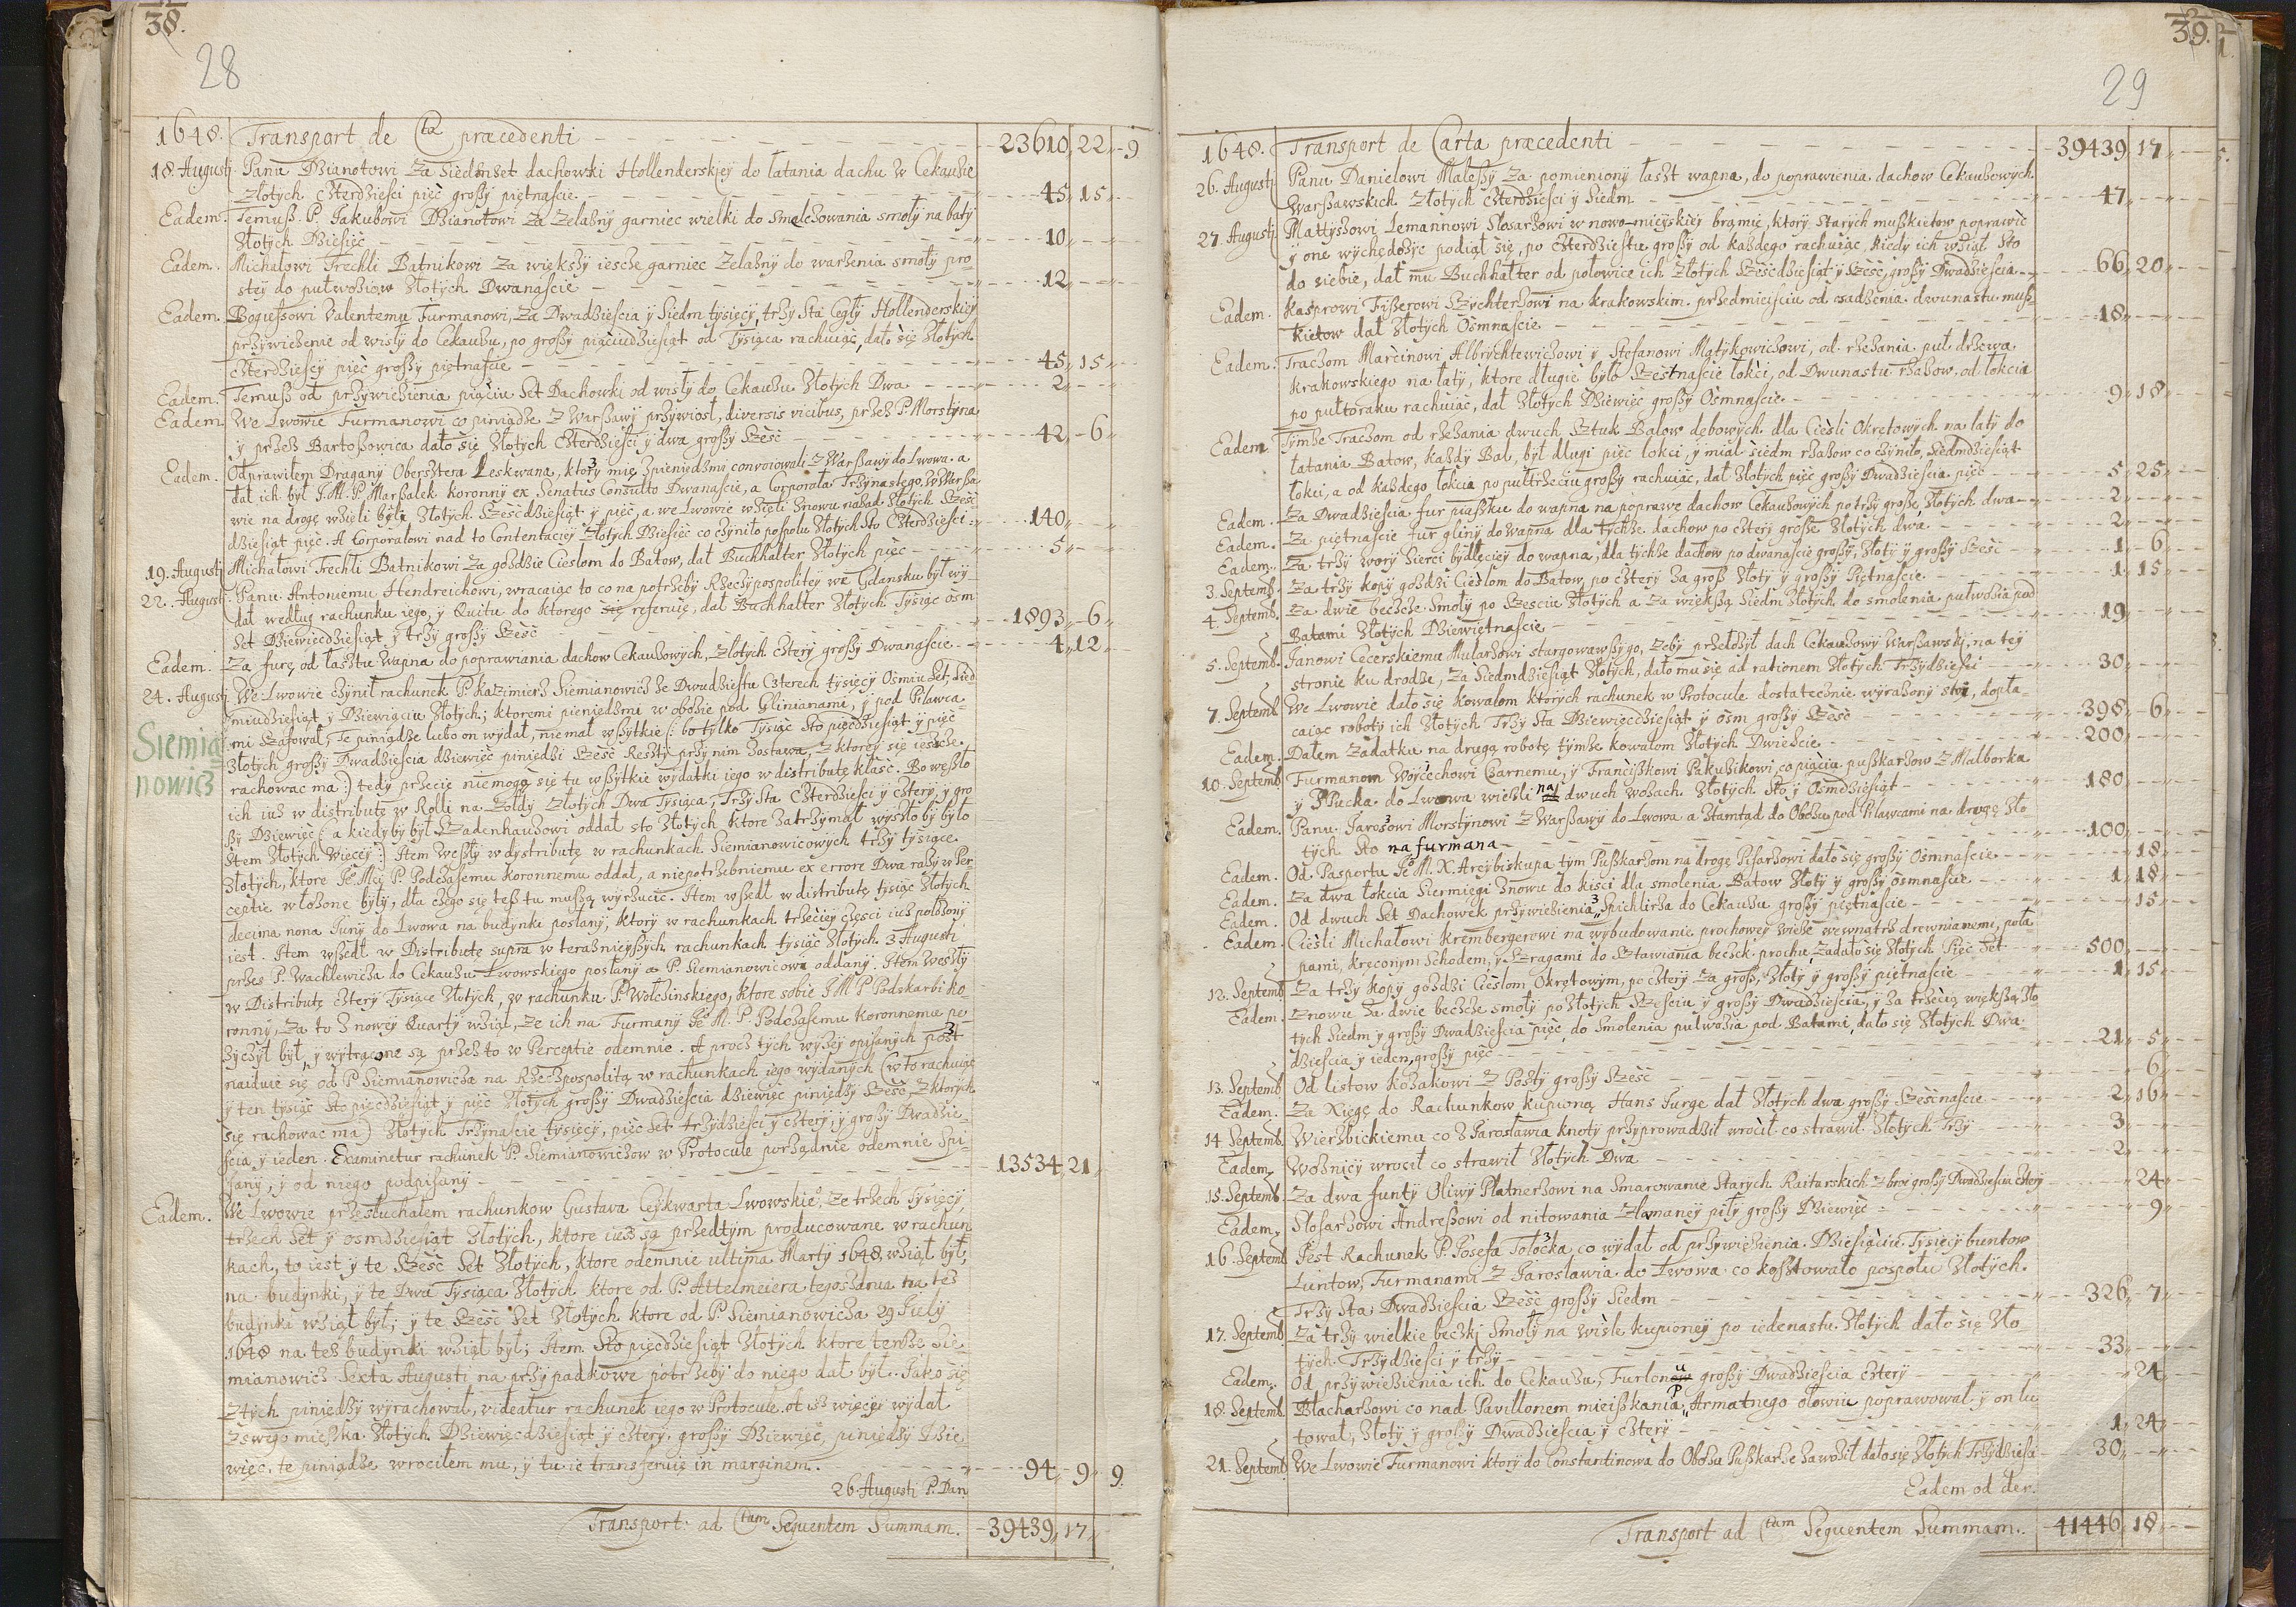 38.
28
1648. Transport de Cta præcedenti 23610 22 9
18. Augusti Panu Dzianotowi za siedmset dachowki Hollenderskiey do łatania dachu w Cekauzie
złotych czterdziesci pięć groszy piętnascie. 45 15
Eadem. Temusz P. Jakubowi Dzianotowi za żelazny garniec wielki do smelcowania smoły na baty
złotych Dziesięć 10
Eadem. Michałowi Trechli Batnikowi za większy iescze garniec żelazny do warzenia smoły pro-
stey do pułwoziow złotych Dwanascie 12
Eadem. Boguszowi Valentemu Furmanowi, za Dwadziescia y siedm tysięcy, trzy sta Cegły Hollenderskiey
przywiezienie od wisły do Cekauzu, po groszy piąciudziesiąt od Tysiąca rachuiąc, dało się złotych
czterdziescy pięć groszy piętnascie 45 15
Eadem. Temusz od przywiezienia piąciu set Dachowki od wisły do Cekauzu złotych Dwa 2
Eadem. We Lwowie Furmanowi co piniądze z Warszawy przywiozł, diversis vicibus, przez P. Morstyna
y przez Bartoszowica dało się złotych czterdziesci y dwa groszy szesc 42 6
Eadem. Odprawiłem Dragany Obersztera Leskwana, ktorzy mię z pieniędzmi convoiowali z Warszawy do Lwowa. a
dał ich był J. M. P. Marszałek koronny ex Senatus Consulto Dwanascie, a Corporała Trzynastego. W Warsza-
wie na drogę wzięli byli złotych szescdziesiąt y pięć, a we Lwowie wzięli znowu nazad złotych szesc
dziesiąt pięć. A Corporałowi nad to Contentaciey złotych Dziesięć co czyniło pospołu złotych sto czterdziesci. 140
19. Augusti Michałowi Trechli Batnikowi za gozdzie Cieslom do Batow, dał Buchhalter złotych pięć 5
22. Augusti Panu Antoniemu Hendreichowi, wracaiąc to co na potrzeby Rzeczypospolitey we Gdansku był wy-
dał według rachunku iego, y Quitu do ktorego się referuię, dał Buchhalter złotych Tysiąc osm
set Dziewiędziesiąt y trzy groszy szesc 1893 6
Eadem. Za furę, od łasztu wapna do poprawiania dachow Cekauzowych, złotych cztery groszy Dwanascie 4 12
24. Augusti We Lwowie czynił rachunek P. Kazimierz Siemianowicz ze Dwudziestu Czterech tysięcy Osmiu set, sied-
miudziesiąt, y Dziewiąciu złotych; ktoremi pieniędzmi w obozie pod Glinianami, y pod Piławca-
mi szafował, Te piniądze lubo on wydał, niemal wszytkie (: bo tylko Tysiąc sto pięcdziesiąt y pięć
Siemia-
nowicz
złotych groszy Dwadziescia dziewięć piniędzi szesc Reszty przy nim zostawa, z ktorey się iescze
rachowac ma :) tedy przecię niemogą się tu wszytkie wydatki iego w distributę klasc. Bo weszło
ich iuz w distributę w Rolli na żołdy złotych Dwa Tysiąca, Trzy sta Czterdziesci y cztery, y gro
szy Dziewięć (: a kiedyby był Szadenhauzowi oddał sto złotych ktore zatrzymał wyszło by było
stem złotych więcey :) Item weszły w dystributę w rachunkach Siemianowicowych trzy tysiące
złotych, ktore Je Mci P. Podczasemu koronnemu oddał, a niepotrzebniemu ex errore Dwa razy w Per
ceptie włozone były, dla czego się tesz tu muszą wyrzucic. Item wszedł w distributę tysiąc złotych
decima nona Juny do Lwowa na budynki posłany, ktory w rachunkach trzeciey częsci iusz położony
iest. Item wszedł w Distributę supra w teraznieyszych rachunkach tysiąc złotych 3 Augusti
przes P. Wachlewicza do Cekauzu Lwowskiego posłany a P. Siemianowicowi oddany. Item weszły
w Distributę cztery Tysiące złotych, w rachunku P. Wołczinskiego, ktore sobie J M P Podskarbi ko
ronny, za to z nowey Quarty wziął, ze ich na Furmany Je M. P. Podczasemu koronnemu po
zyczył był, y wytrącone są przez to w Perceptie odemnie. A procz tych wyzey opisanych poz-
naiduie się od P Siemianowicza na Rzeczpospolitą w rachunkach iego wydanych (w to rachuiąc
y ten tysiąc sto pięcdziesiąt y pięć złotych groszy Dwadziescia dziewięć piniędzy szesc, z ktorych
się rachowac ma) złotych Trzynascie tysięcy, pięć set trzydziesci y cztery, y groszy Dwadzie-
scia y ieden. Examinetur rachunek P. Siemianowiczow w Protocule porządnie odemnie spi-
sany, y od niego podpisany 13534 21
Eadem. We Lwowie przesłuchałem rachunkow Gustava Ceykwarta Lwowskiego, ze trzech Tysięcy,
trzech set y osmdziesiąt złotych, ktore iusz są przedtym producowane w rachun
kach, to iest y te szesc set złotych, ktore odemnie ultima Marty 1648 wziął był,
na budynki, y te Dwa Tysiąca złotych ktore od P. Attelmeiera tegosz dnia na tez
budynki wziął był; y te szesc set złotych ktore od P. Siemianowicza 29 July
1648 na tez budynki wziął był; Item sto pięcdziesiąt złotych ktore tenze Sie-
mianowicz Sexta Augusti na przypadkowe potrzeby do niego dał był. Jako się
z tych piniędzy wyrachował, videatur rachunek iego w Protocule. A isz więcey wydał
z swego mieszka złotych Dziewięcdziesiąt y cztery groszy Dziewięć, piniędzy Dzie
więć, te piniądze wrociłem mu, y tu ie transferuię in marginem. 94 9 9
26 Augusti P. Dan.
Transport ad Ctam Sequentem Summam. 39439 17
39.
29
1648. Transport de Carta præcedenti 39439 17
26. Augusti Panu Danielowi Maleszy za pomieniony łaszt wapna, do poprawienia dachow Cekauzowych
Warszawskich złotych czterdziesci y siedm 47
27. Augusti Mattyszowi Lemannowi Slosarzowi w nowo-mieyskiey bramie, ktory starych muszkietow poprawic
y one wychędożyc podiął się, po czterdziestu groszy od kazdego rachuiąc, kiedy ich wziął sto
do siebie, dał mu Buchhalter od połowice ich złotych szescdziesiąt y szesc, groszy Dwadziescia 66 20
Eadem. Kasprowi Fyszerowi Szychterzowi na krakowskim przedmiesciu od osadzenia dwunastu musz-
kietow dał złotych Osmnascie 18
Eadem. Traczom Marcinowi Albrychtewiczowi y Stefanowi Matykowiczowi, od rzezania puł drzewa
krakowskiego na łaty, ktore długie było szestnascie łokci, od Dwunastu rzazow od łokcia
po pułtoraku rachuiąc, dał złotych Dziewięć groszy Osmnascie 9 18
Eadem Tymze Traczom od rzezania dwuch sztuk Balow dębowych dla Ciesli Okrętowych na łaty do
łatania Batow, kazdy Bal, był długi pięć łokci, y miał siedm rzazow co czyniło, siedmdziesiąt
łokci, a od kazdego łokcia po pułtrzeciu groszy rachuiąc, dał złotych pięć groszy Dwadziescia pięć 5 25
Eadem. Za Dwadziescia fur piaszku do wapna na poprawę dachow Cekauzowych po trzy grosze, złotych dwa 2
Eadem. Za piętnascie fur gliny do wapna dla tychze dachow po cztery grosze złotych dwa 2
Eadem. Za trzy wory sierci bydlęciey do wapna, dla tychze dachow po dwanascie groszy, złoty y groszy szesc 1 6
3. Septemb. Za trzy kopy gozdzi Cieslom do Batow, po cztery za grosz złoty y groszy Piętnascie 1 15
4. Septemb. Za dwie beczce smoły po szesciu złotych a za większą siedm złotych do smolenia pułwozia pod
Batami złotych Dziewiętnascie 19
5. Septemb. Janowi Cecerskiemu Mularzowi stargowawszy go, zeby przełozył dach Cekauzowy Warszawsky, na tey
stronie ku drodze, za siedmdziesiąt złotych, dało mu się ad rationem złotych Trzydziesci 30
7. Septemb. We Lwowie dało się kowalom ktorych rachunek w Protocule dostatecznie wyrazony stoi, dopła-
caiąc roboty ich złotych Trzy sta Dziewięcdziesiąt y osm groszy szesc 398 6
Eadem. Dałem zadatku na drugą robotę tymze kowalom złotych Dwiescie 200
10. Septemb. Furmanom Woyciechowi Czarnemu, y Franciszkowi Pakuzikowi, co piąciu puszkarzow z Malborka
y z Pucka do Lwowa wiezli na dwuch wozach złotych sto y Osmdziesiąt 180
Eadem. Panu Jaroszowi Morstynowi z Warszawy do Lwowa a ztamtąd do Obozu pod Piławcami na drogę zło
tych sto na furmana 100
Eadem. Od Pasportu Je M. X. Arcybiskupa tym Puszkarzom na drogę Pisarzowi dało się groszy Osmnascie 18
Eadem. Za dwa łokcia siermięgi znowu do kisci dla smolenia Batow złoty y groszy osmnascie 1 18
Eadem. Od dwuch set Dachowek przywiezienia z Spichlirza do Cekauzu groszy piętnascie 15
Eadem. Ciesli Michałowi Krembergerowi na wybudowanie prochowey wieze wewnątrz drewnianemi, poła
pami, kręconym schodem, y szragami do stawiania beczek prochu, zadało się złotych Pięć set 500
12. Septemb. Za trzy kopy gozdzi Cieslom Okrętowym, po cztery za grosz, złoty y groszy piętnascie 1 15
Eadem. Znowu za dwie beczce smoły po złotych szesciu y groszy Dwadziescia, y za trzecią większą zło-
tych siedm y groszy Dwadziescia pięć, do smolenia pułwozia pod Batami, dało się złotych Dwa-
dziescia y ieden, groszy pięć 21 5
13. Septemb. Od listow kozakowi z Poszty groszy szesc 6
Eadem. Za Xięgę do Rachunkow kupioną Hans Jurge dał złotych dwa groszy szescnascie 2 16
14. Septemb. Wierzbickiemu co z Jarosławia knoty przyprowadził wrocił co strawił złotych Trzy 3
Eadem. Woznicy wrocił co strawił złotych Dwa 2
15. Septemb. Za dwa funty Oliwy Płatnerzowi na smarowanie starych Raitarskich zbroi groszy Dwadziescia cztery 24
Eadem. Slosarzowi Andreszowi od nitowania złamaney piły groszy Dziewięć 9
16. Septemb. Jest Rachunek P. Josefa Tołoczka, co wydał od przywiezienia Dziesiąciu Tysięcy buntow
Luntow, Furmanami z Jarosławia do Lwowa co kosztowało pospołu złotych
Trzy sta, Dwadziescia szesc groszy siedm 326 7
17. Septemb. Za trzy wielkie beczki smoły na wisle kupioney po iedenastu złotych dało się zło
tych Trzydziesci y trzy 33
Eadem. Od przywiezienia ich do Cekauzu, Furlonu groszy Dwadziescia cztery 24
18. Septemb. Blacharzowi co nad Pavillonem mieszkania P Armatnego ołowiu poprawował y on lu
tował, złoty y groszy Dwadziescia y cztery 1 24
21. Septemb. We Lwowie Furmanowi ktory do Constantinowa do Obozu Puszkarze zawozil dało się złotych Trzydziesci 30
Eadem od der.
Transport ad Ctam Sequentem Summam. 41446 18